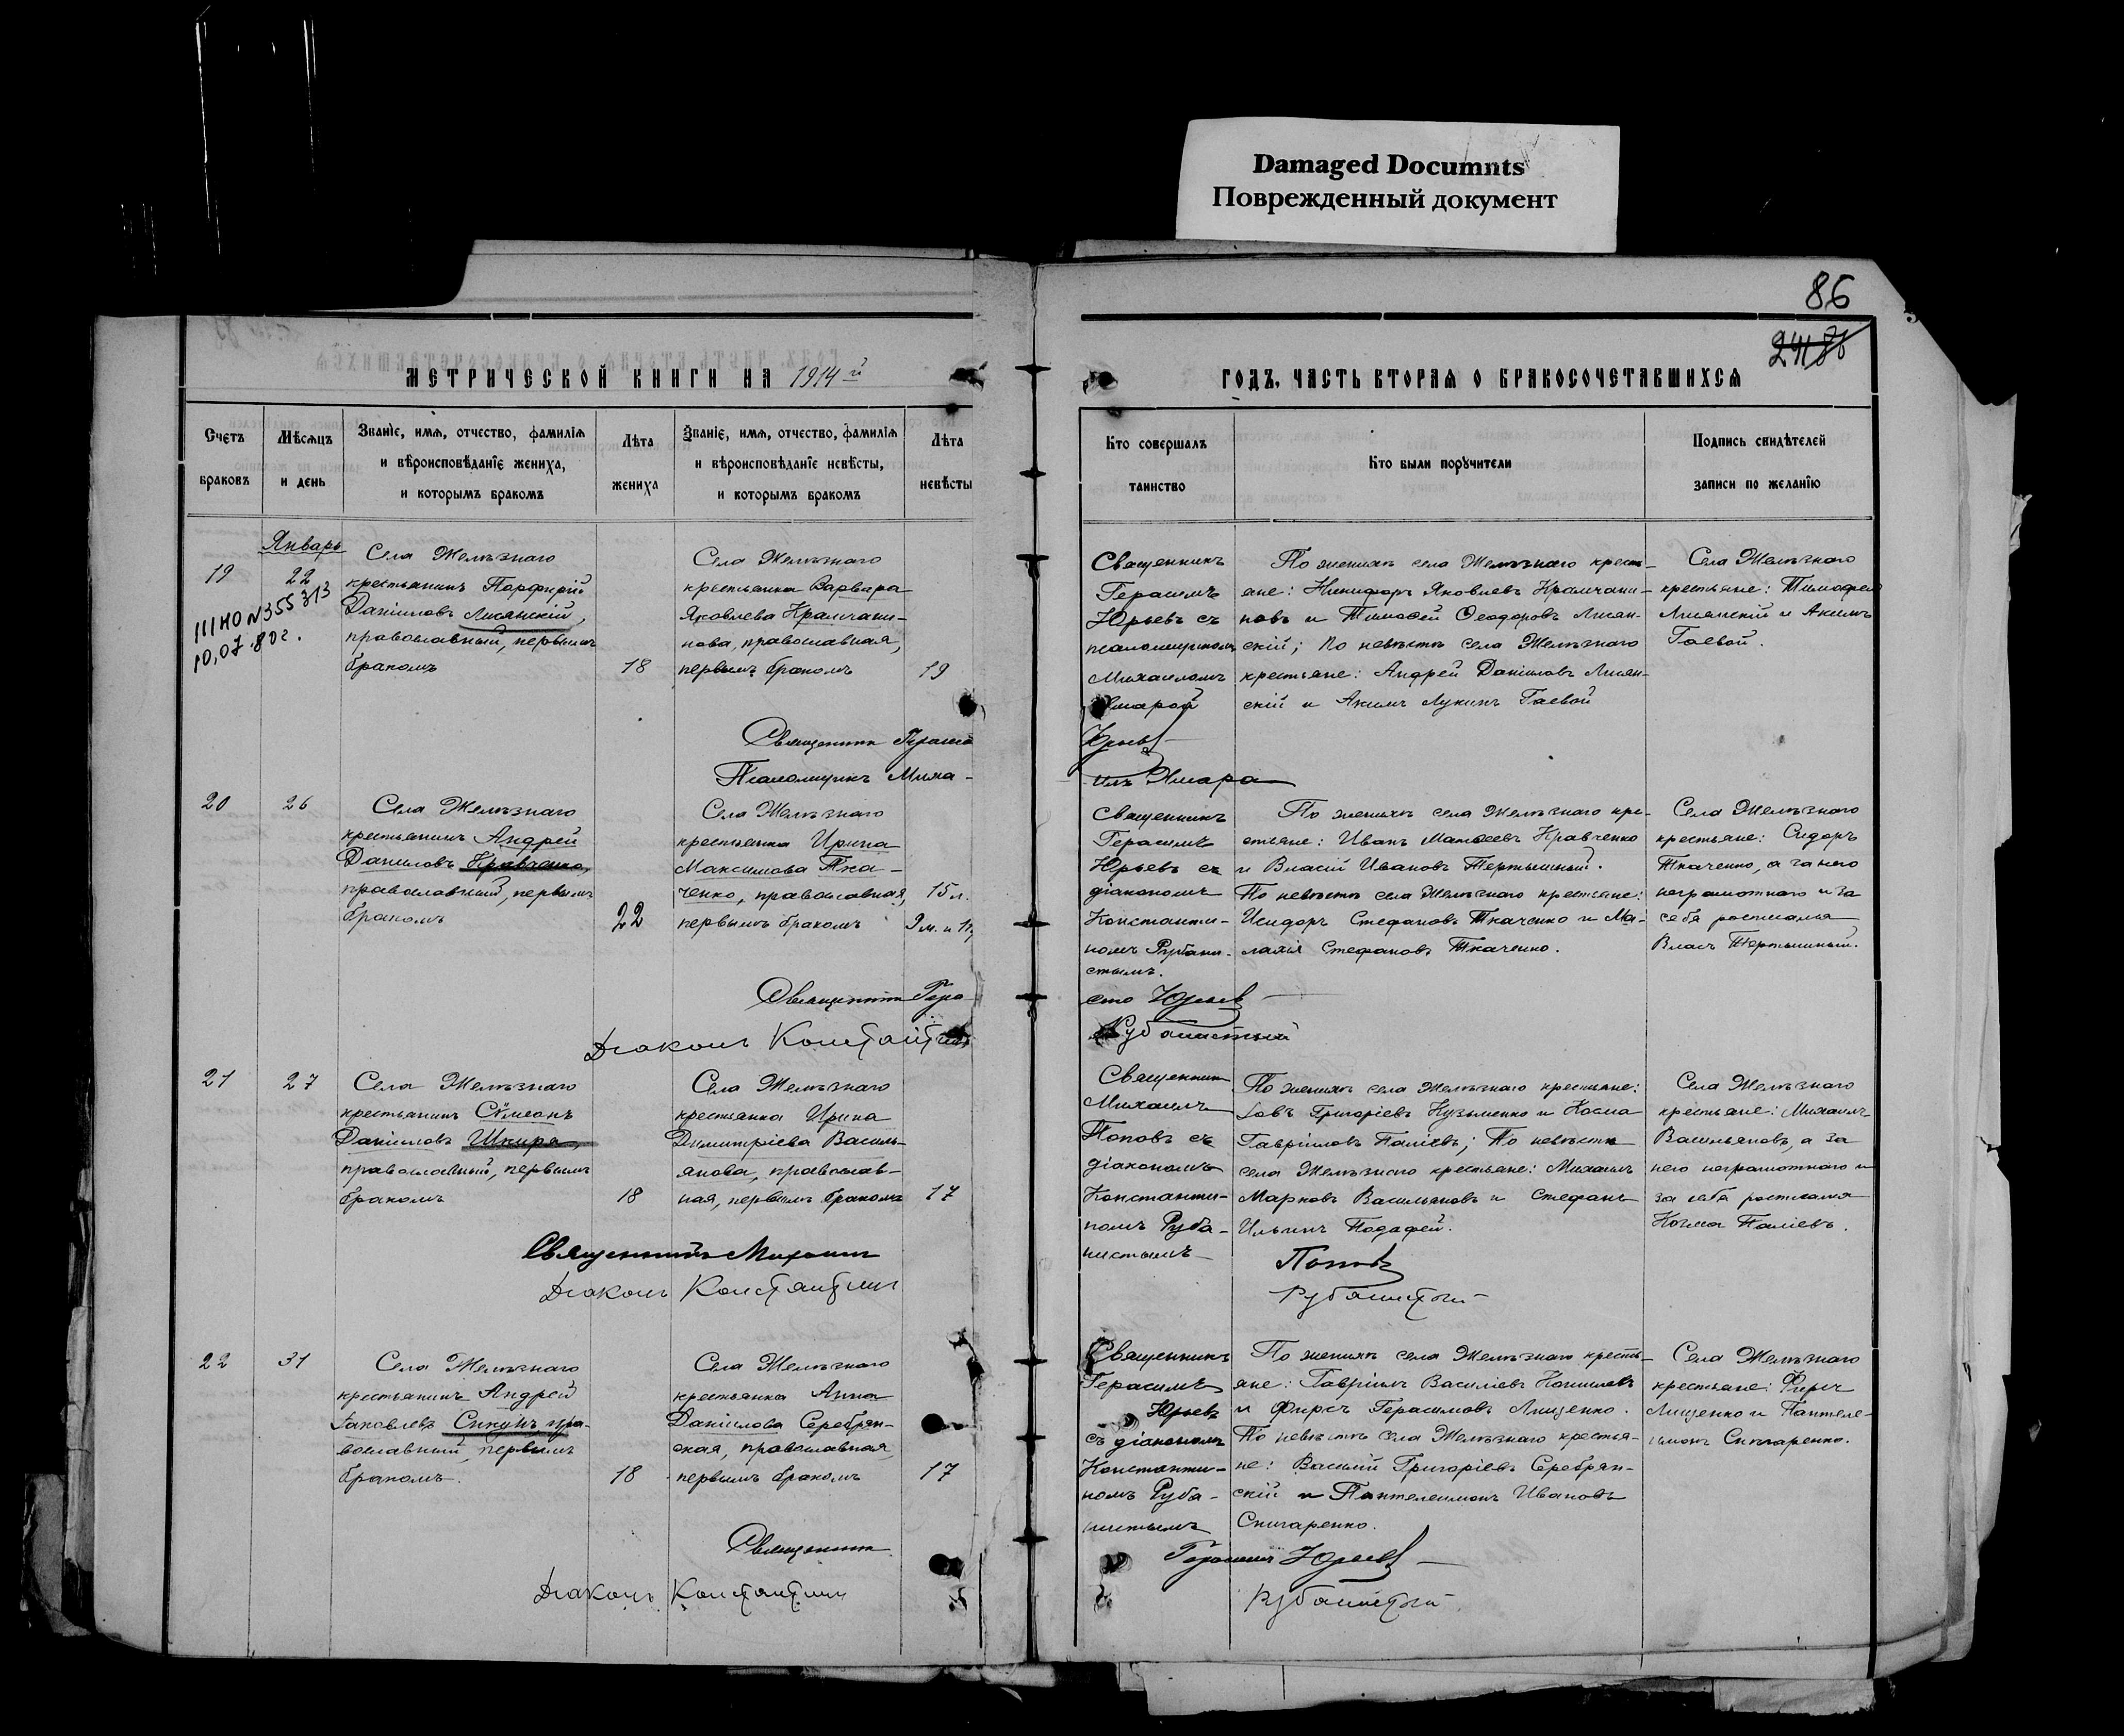 Damaged Documnts
Поврежденный документ
86
МЕТРИЧЕСКОЙ КНИГИ НА 1914 й
ГОДЪ, ЧАСТЬ ВТОРАЯ О БРАКОСОЧЕТАВШИХСЯ
Счетъ
браковъ
Мѣсяцъ
и день
Званіе, имя, отчество, фамилія
и вѣроисповѣданіе жениха,
и которымъ бракомъ
Лѣта
жениха
Званіе, имя, отчество, фамилія
и вѣроисповѣданіе невѣсты,
и которымъ бракомъ
Лѣта
невѣсты
Кто совершалъ
таинство
Кто были поручители
Подпись свидѣтелей
записи по желанію
19
III НО N 355313
10.07.80г.
Январь
22
Села Желѣзнаго
крестьянинъ Порфирій
Даніиловъ Лисянскій,
православный, первымъ
бракомъ
18
Села Желѣзнаго
крестьянка Варвара
Яковлева Крамчани-
нова, православная,
первымъ бракомъ
19
Священникъ
Герасимъ
Юрьевъ съ
псаломщикомъ
Михаиломъ
По женихѣ села Желѣзнаго кресть-
яне: Никифоръ Яковлевъ Крамчани-
новъ и Тимофей Ѳеодоровъ Лисян-
скій; По невѣстѣ села Желѣзнаго
крестьяне: Андрей Даніиловъ Лисян-
скій и Акимъ Лукинъ Гаевой
Села Желѣзнаго
крестьяне: Тимофей
Лисянскій и Акимъ
Гаевой.
Священникъ Гераси
Юрьевъ
Псаломщикъ Миха-
илъ
20
26
Села Желѣзнаго
крестьянинъ Андрей
Даниловъ Кравченко,
православный, первымъ
бракомъ
22
Села Желѣзнаго
крестьянка Ирина
Максимова Тка-
ченко, православная,
первымъ бракомъ
15 л.
9 м. и 11
Священникъ
Герасимъ
Юрьевъ съ
діакономъ
Константи-
номъ Рубани-
стымъ.
По женихѣ села Желѣзнаго кре-
стьяне: Иванъ Матѳеевъ Кравченко
и Власій Ивановъ Тертышный.
По невѣстѣ села Желѣзнаго крестьяне:
Исидоръ Стефановъ Ткаченко и Ма-
лахія Стефановъ Ткаченко.
Села Желѣзнаго
крестьяне: Сидоръ
Ткаченко, а за него
неграмотнаго и за
себя росписался
Власъ Тертышный.
Священникъ Гера
симъ Юрьевъ
Діаконъ Константинъ
Рубанистый
21
27
Села Желѣзнаго
крестьянинъ Сѵмеонъ
Даніиловъ Шкира,
православный, первымъ
бракомъ
18
Села Желѣзнаго
крестьянка Ирина
Димитріева Василь-
янова, православ-
ная, первымъ бракомъ
17
Священникъ
Михаилъ
Поповъ съ
діакономъ
Константи-
номъ Руба-
нистымъ
По женихѣ села Желѣзнаго крестьяне:
Іовъ Григоріевъ Кузьменко и Косма
Гавріиловъ Паліевъ; По невѣстѣ
села Желѣзнаго крестьяне: Михаилъ
Марковъ Васильяновъ и Стефанъ
Ильинъ
Села Желѣзнаго
крестьяне: Михаилъ
Васильяновъ, а за
него неграмотнаго и
за себя росписался
Косма Паліевъ.
Священникъ Михаилъ
Поповъ
Діаконъ Константинъ
Рубанистый
22
31
Села Желѣзнаго
крестьянинъ Андрей
Іаковлевъ Сикунъ, пра-
вославный, первымъ
бракомъ.
18
Села Желѣзнаго
крестьянка Анна
Даніилова Серебрян-
ская, православная
первымъ бракомъ
17
Священникъ
Герасимъ
Юрьевъ
съ діакономъ
Константи-
номъ Руба-
нистымъ
По женихѣ села Желѣзнаго кресть-
яне: Гавріилъ Василіевъ
и Фирсъ Герасимовъ Лященко.
По невѣстѣ села Желѣзнаго крестья-
не: Василій Григоріевъ Серебрян-
скій и Пантелеимонъ Ивановъ
Села Желѣзнаго
крестьяне: Фирсъ
Лященко и Пантеле-
имонъ
Священникъ
Герасимъ Юрьевъ
Діаконъ Константинъ
Рубанистый